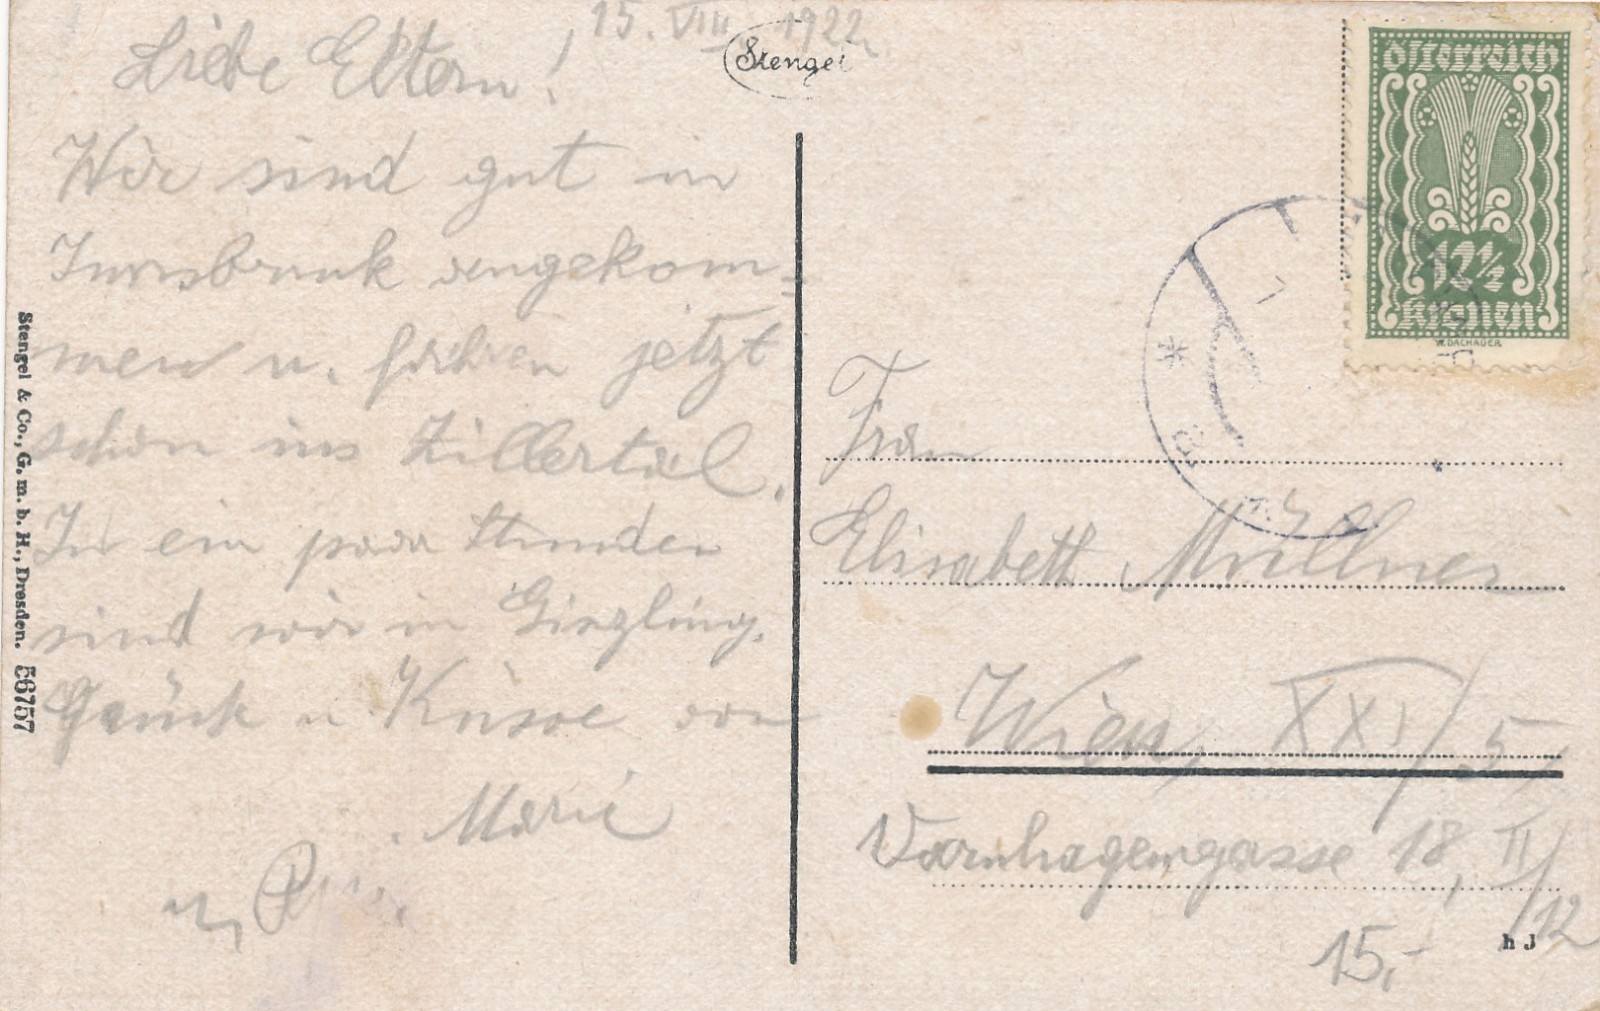 15. VIII 1922
Stengel
Liebe Eltern!
Wir sind gut in
Innsbruck angekom=
men u. fahren jetzt
schon ins Zillertal.
In ein paar Stunden
sind wir in Ginzling.
Grüsse u Küsse von
Marie
u.
Stengel & Co., G. m. b. H., Dresden. 56757
Österreich
12½
Kronen
W. DACHAUER
Frau
Elisabeth Müllner
Wien, XXI/5,
Varnhagengasse 18, II/12
15,-